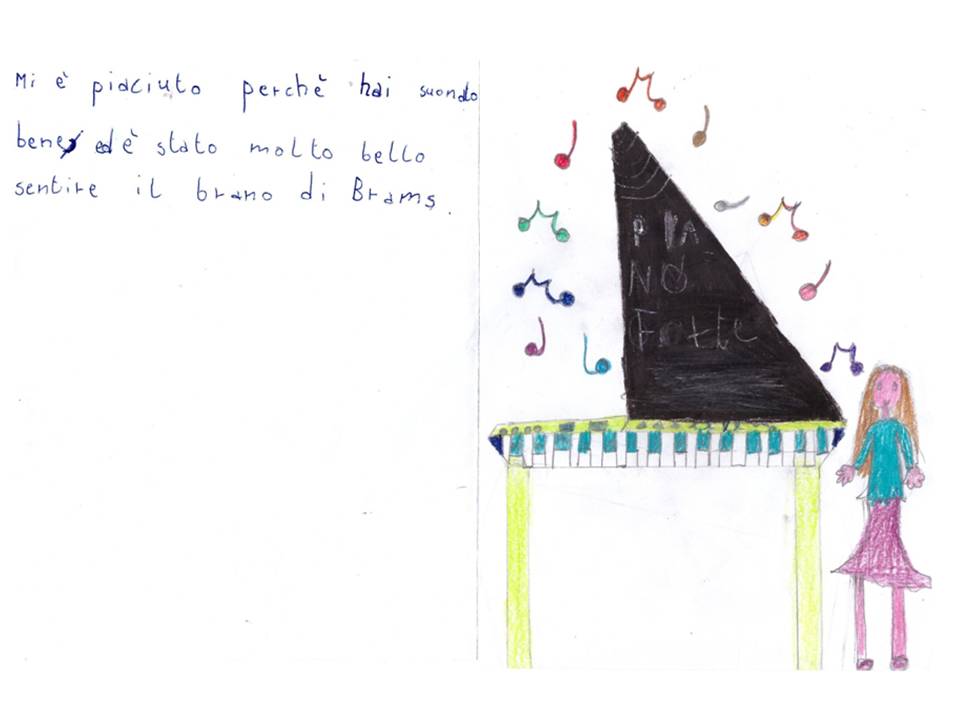 Mi è piaciuto perchè hai suonato
bene ed è stato molto bello
sentire il brano di Brams.
PIA
NO
Forte